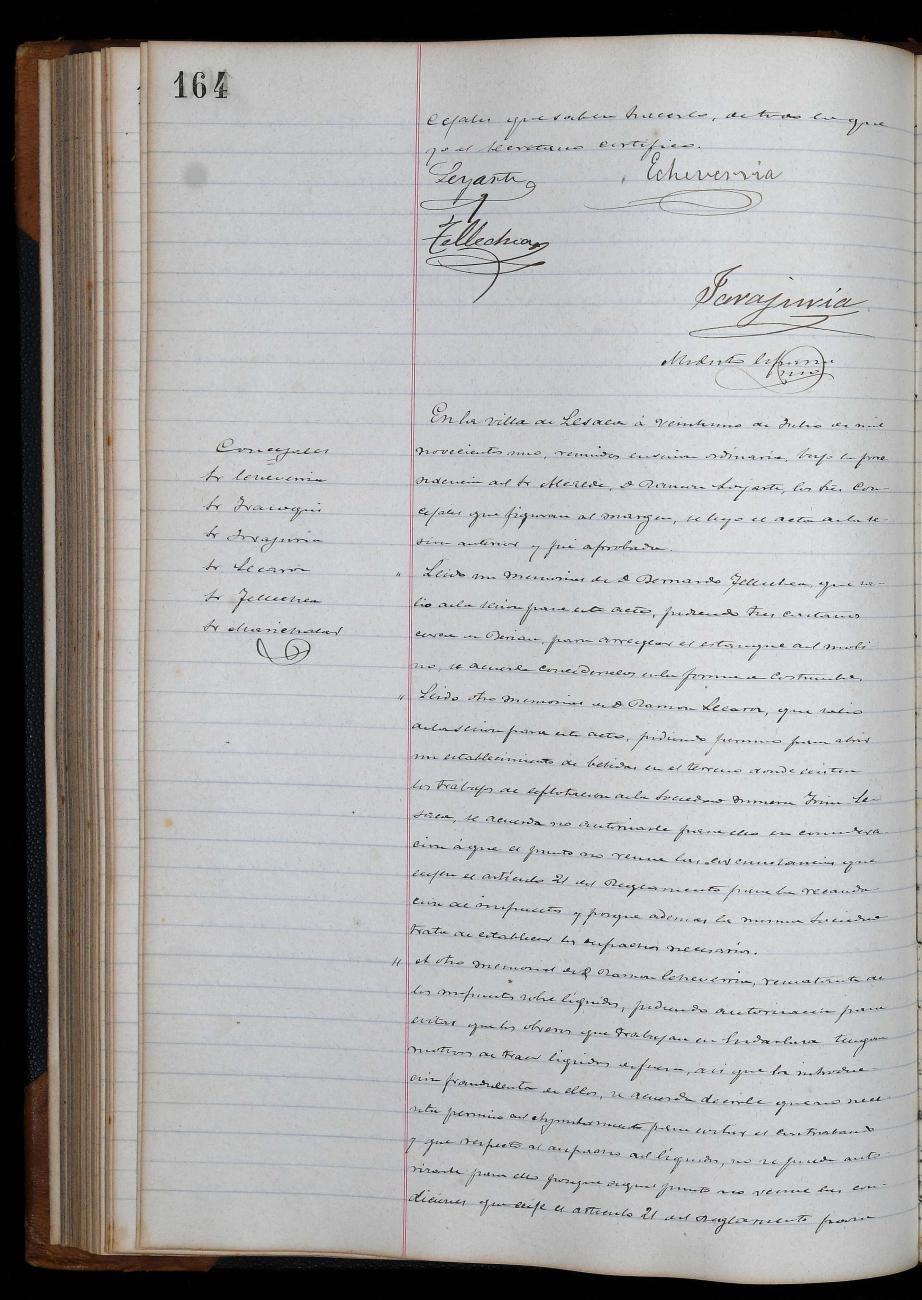 164
cejales que saben hacerlo, de todo lo que
yo el Secretario certifico.
Echeverria
Tellechea
En la villa de Lesaca á veintiuno de Julio de mil
novecientos uno, reunidos en sesion ordinaria, bajo la presi
dencia del Sr Alcalde, D. Ramon los Sres Con-
cejales que figuran al margen, se leyo el acta de la se-
sion anterior y fué aprobada.
Concejales
Sr Echeverria
Sr
Sr
Sr Lecaroz
Sr Tellechea
Sr Marichalar
" Leido un memorial de D Bernardo Tellechea, que sa-
lio de la sesion para este acto, pidiendo tres castaños
en para arreglar el estanque del moli
no, se acuerda concederselos en la forma de costumbre.
" Leido otro memorial de D Ramon Lecaroz, que salio
de la sesion para este acto, pidiendo permiso para abrir
un establecimiento de bebidas en el terreno donde existen
los trabajos de esplotacion de la Sociedad minera Irun Le
saca, se acuerda no autorizarle para ello en considera
cion á que el punto no reune las circunstancias que
exije el artículo 21 del Reglamento para la recauda
cion de impuestos y porque ademas la misma Sociedad
trata de establecer los despachos necesarios.
" Al otro memorial de D Ramon Echeverria, rematante de
los impuestos sobre líquidos, pidiendo autorizacion para
evitar que los obreros que trabajan en Endarlaza tengan
motivos de traer líquidos de fuera, asi que la introduc
cion fraudulenta de ellos, se acuerda decirle que no nece
sita permiso del Ayuntamiento para evitar el contrabando
y que respecto al despacho del líquidos, no se puede auto
rizarle para ello porque aquel punto no reune las con-
diciones que exije el artículo 21 del Reglamento para